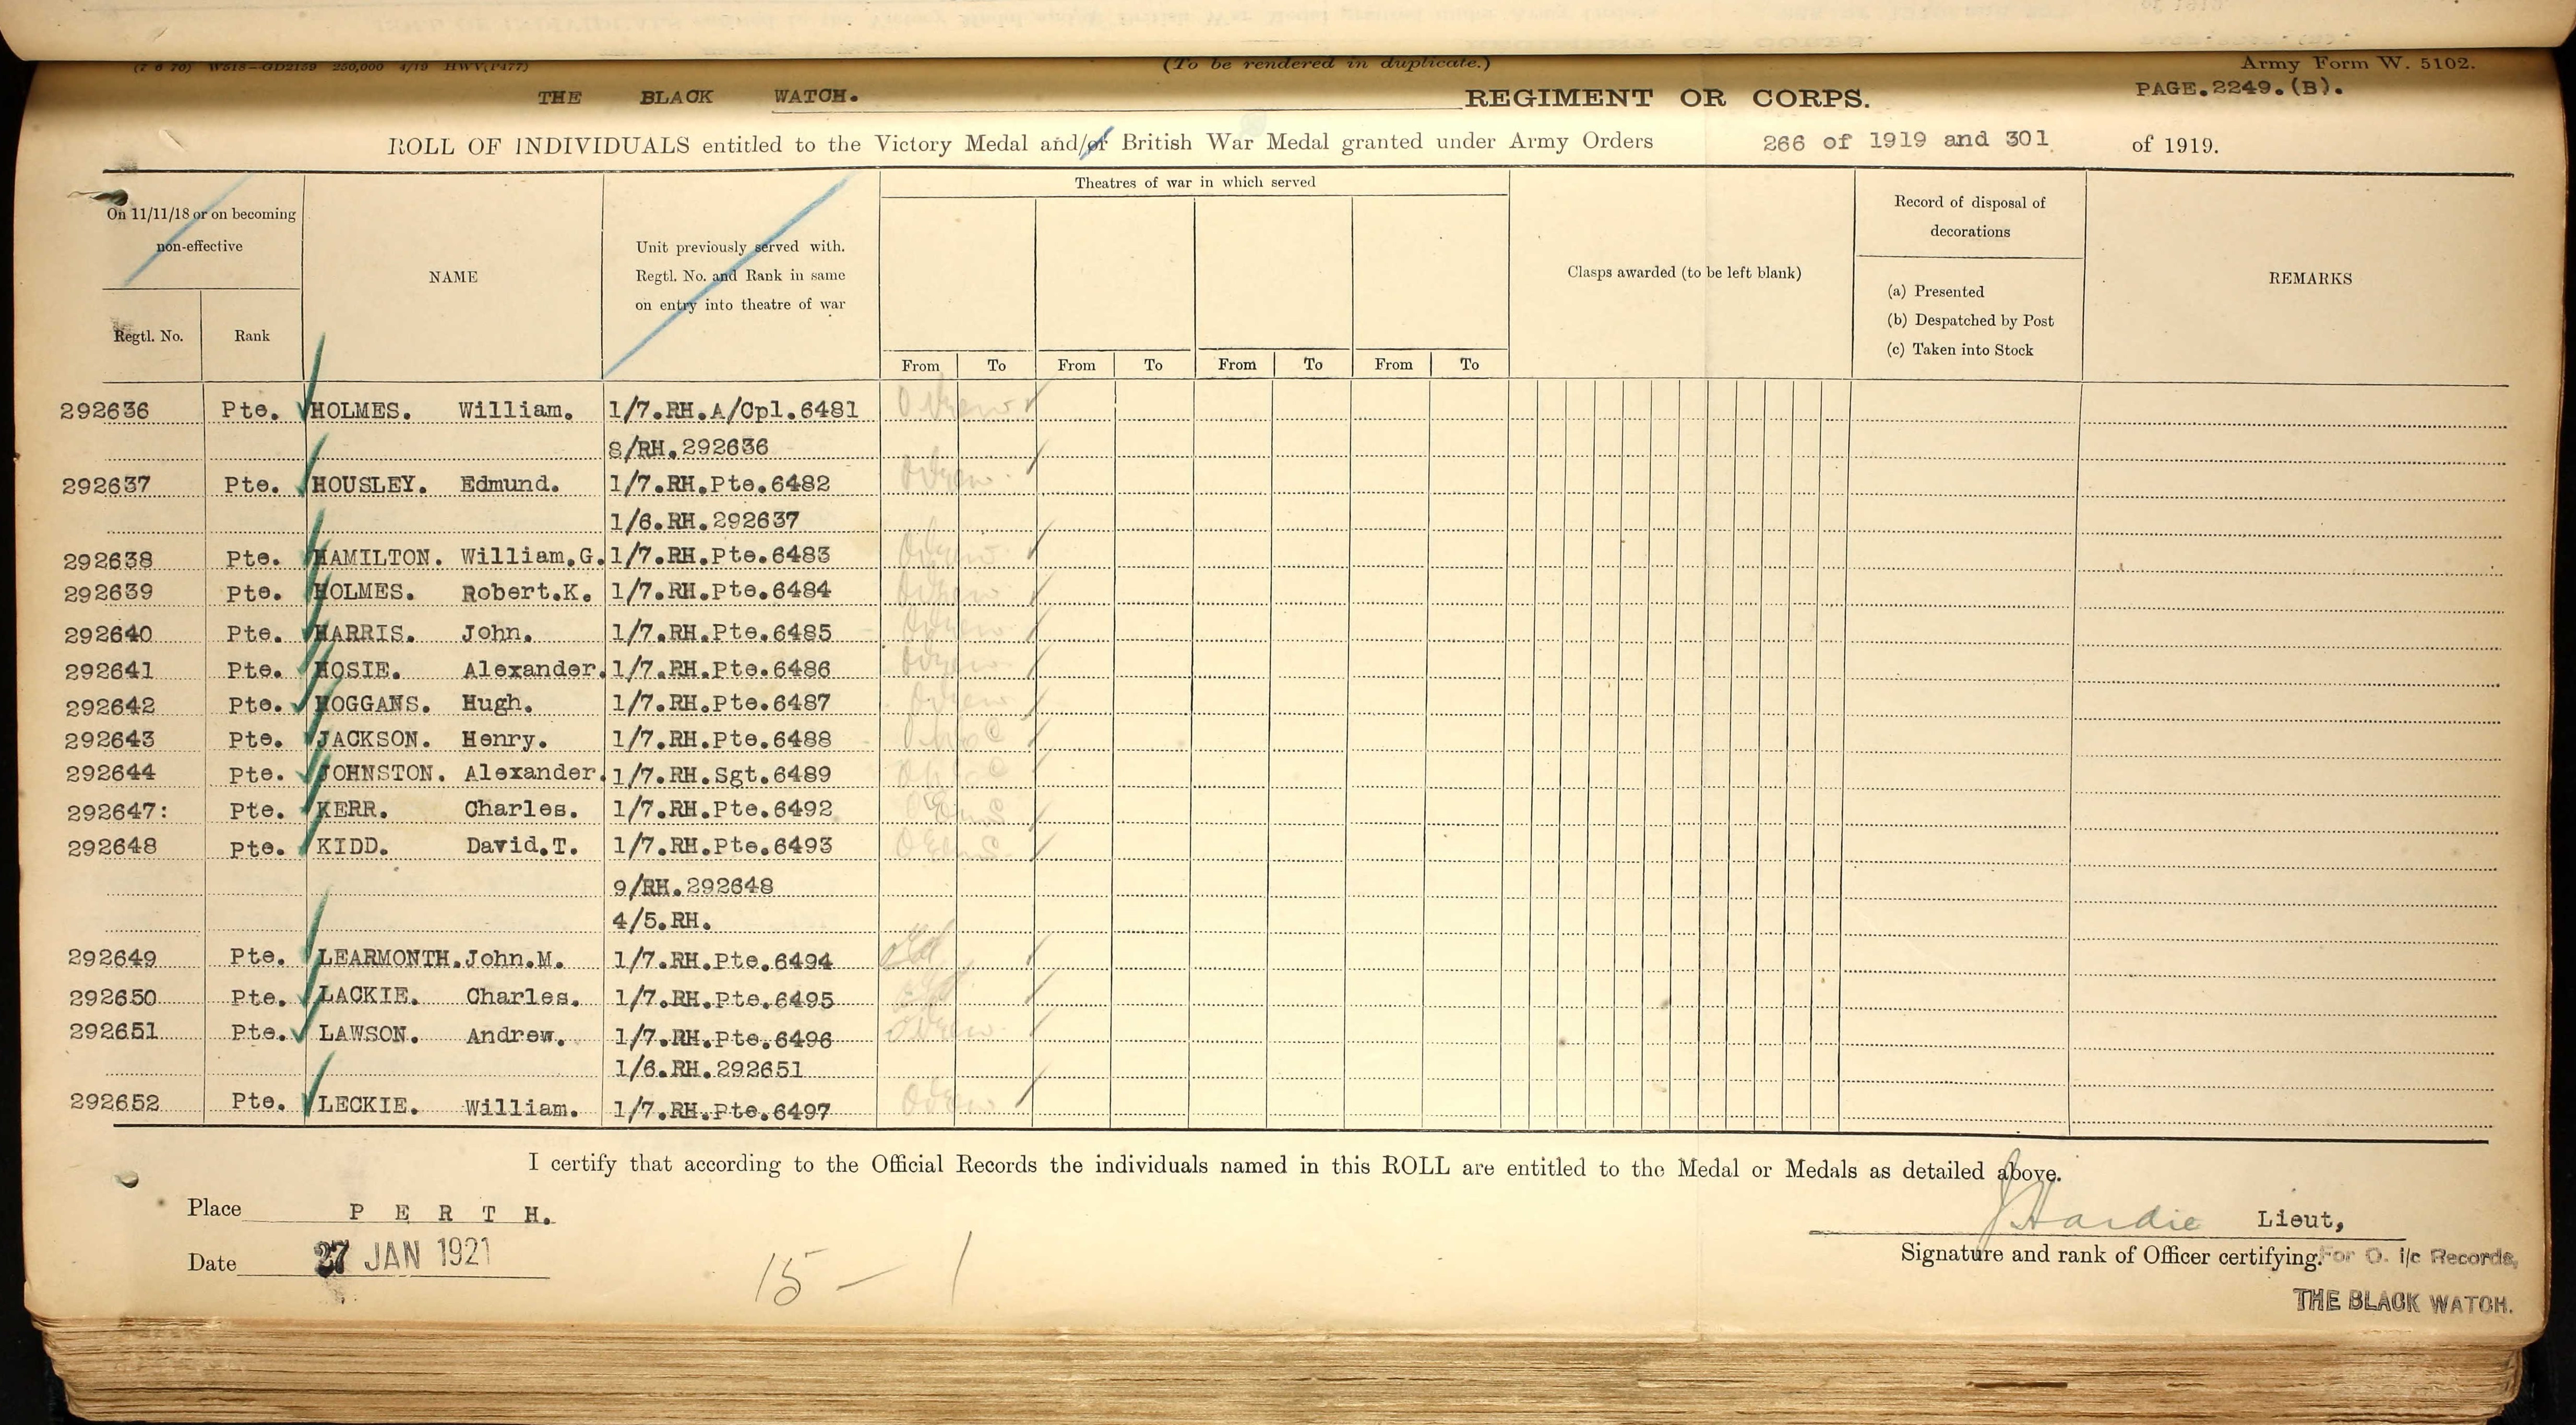 (7 6 70) W518—GD2159 250,000 4/19 HWV(P477)
(To be rendered in duplicate.)
Army Form W. 5102.
THE BLACK WATCH. REGIMENT OR CORPS.
PAGE.2249.(B).
ROLL OF INDIVIDUALS entitled to the Victory Medal and/or British War Medal granted under Army Orders 266 of 1919 and 301 of 1919.
On 11/11/18 or on becoming
non-effective
Regtl. No.
Rank
NAME
Unit previously served with.
Regtl. No. and Rank in same
on entry into theatre of war
Theatres of war in which served
From To From To From To From To
Clasps awarded (to be left blank)
Record of disposal of
decorations
(a) Presented
(b) Despatched by Post
(c) Taken into Stock
REMARKS
292636 Pte. HOLMES. William. 1/7.RH.A/Cpl.6481
8/RH.292636
292637 Pte. HOUSLEY. Edmund. 1/7.RH.Pte.6482
1/6.RH.292637
292638 Pte. HAMILTON. William.G. 1/7.RH.Pte.6483
292639 Pte. HOLMES. Robert.K. 1/7.RH.Pte.6484
292640 Pte. HARRIS. John. 1/7.RH.Pte.6485
292641 Pte. HOSIE. Alexander. 1/7.RH.Pte.6486
292642 Pte. HOGGANS. Hugh. 1/7.RH.Pte.6487
292643 Pte. JACKSON. Henry. 1/7.RH.Pte.6488
292644 Pte. JOHNSTON. Alexander. 1/7.RH.Sgt.6489
292647: Pte. KERR. Charles. 1/7.RH.Pte.6492
292648 Pte. KIDD. David.T. 1/7.RH.Pte.6493
9/RH.292648
4/5.RH.
292649 Pte. LEARMONTH. John.M. 1/7.RH.Pte.6494
292650 Pte. LACKIE. Charles. 1/7.RH.Pte.6495
292651 Pte. LAWSON. Andrew. 1/7.RH.Pte.6496
1/6.RH.292651
292652 Pte. LECKIE. William. 1/7.RH.Pte.6497
I certify that according to the Official Records the individuals named in this ROLL are entitled to the Medal or Medals as detailed above.
Place P E R T H.
J Hardie Lieut,
Date 27 JAN 1921
15 — 1
Signature and rank of Officer certifying. For O. i/c Records,
THE BLACK WATCH.